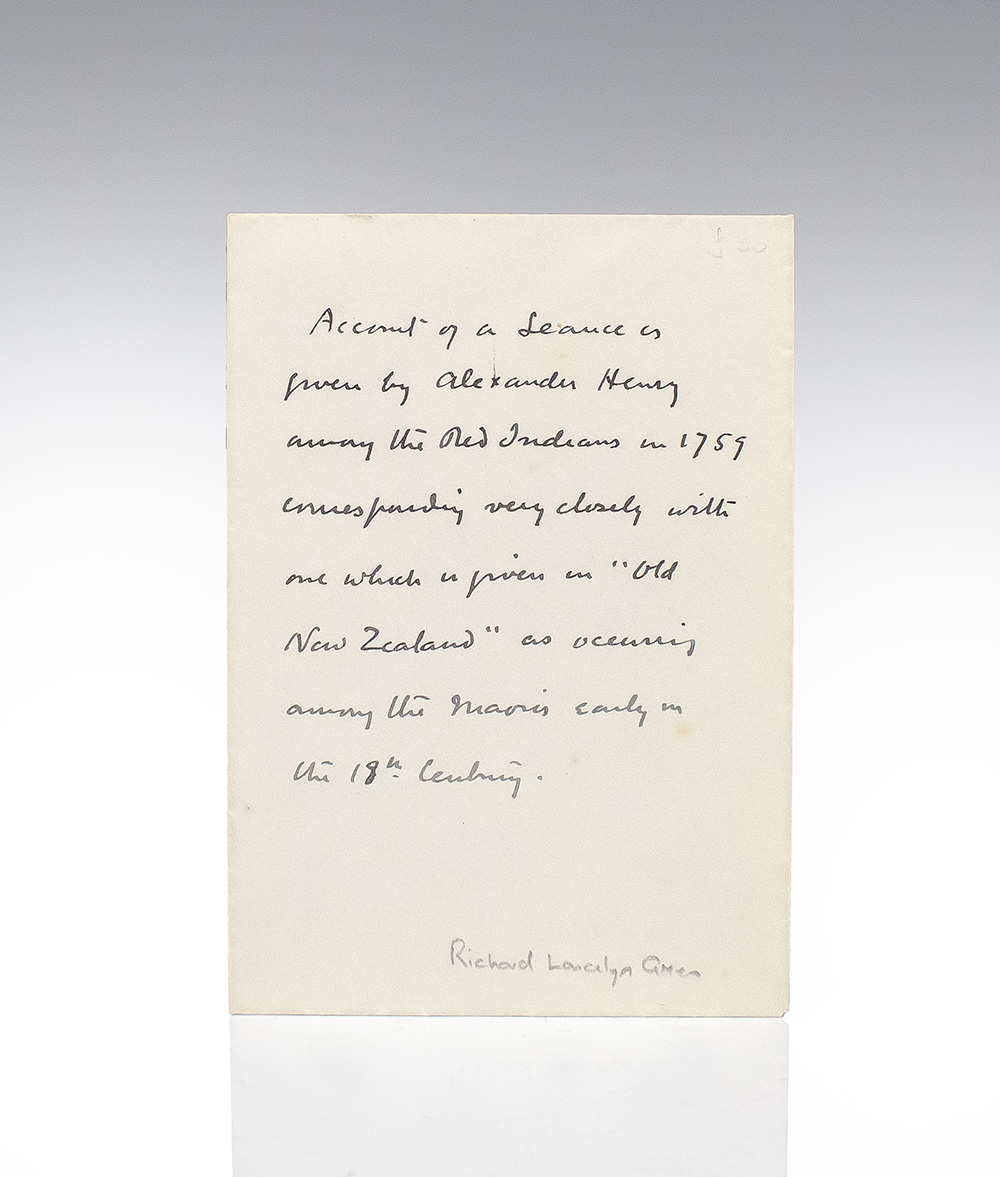 £ 30
Account of a Seance is
given by Alexander Henry
among the Red Indians in 1759
corresponding very closely with
one which is given in "Old
New Zealand" as occurring
among the Maoris early in
the 18th Century.
Richard Lancelyn Green